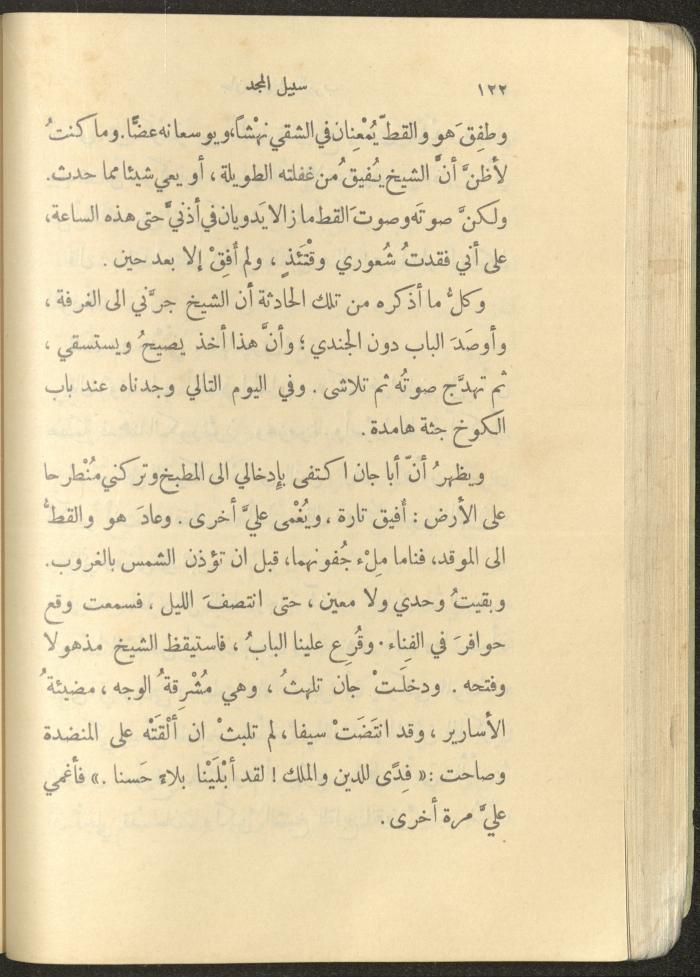 ١٢٢
سبيل المجد
وطفِقَ هو والقطّ يُمْعِنان في الشقي نهْشاً، ويوسعانه عضًّا. وما كنتُ
لأظنَّ أنَّ الشيخ يُفيقُ من غفلته الطويلة، أو يعي شيئا مما حدث.
ولكنَّ صوتَه وصوتَ القط ما زالا يَدويان في أذنيَّ حتى هذه الساعة،
على أني فقدتُ شُعوري وقْتَئذٍ، ولم أفِقْ إلا بعد حين.
وكلُّ ما أذكره من تلك الحادثة أن الشيخ جرَّني الى الغرفة،
وأوصَدَ الباب دون الجندي؛ وأنَّ هذا أخذ يصيحُ ويستسقي،
ثم تهدَّج صوتُه ثم تلاشى. وفي اليوم التالي وجدناه عند باب
الكوخ جثة هامدة.
ويظهرُ أنّ أبا جان اكتفى بإدخالي الى المطبخ وتركني مُنْطرحا
على الأرض: أفيق تارة، ويُغْمى عليَّ أخرى. وعادَ هو والقطُّ
الى الموقد، فناما مِلْء جُفونهما، قبل ان تؤذن الشمس بالغروب.
وبقيتُ وحدي ولا معين، حتى انتصفَ الليل، فسمعت وقع
حوافرَ في الفِناء. وقُرِع علينا البابُ، فاستيقظ الشيخ مذهولا
وفتحه. ودخلَتْ جان تلهثُ، وهي مُشْرِقةُ الوجه، مضيئةُ
الأسارير، وقد انتَضَتْ سيفا، لم تلبثْ ان ألْقَتْه على المنضدة
وصاحت: «فِدًى للدين والملك! لقد أبْلَيْنا بلاءً حَسنا.» فأغمي
عليَّ مرة أخرى.